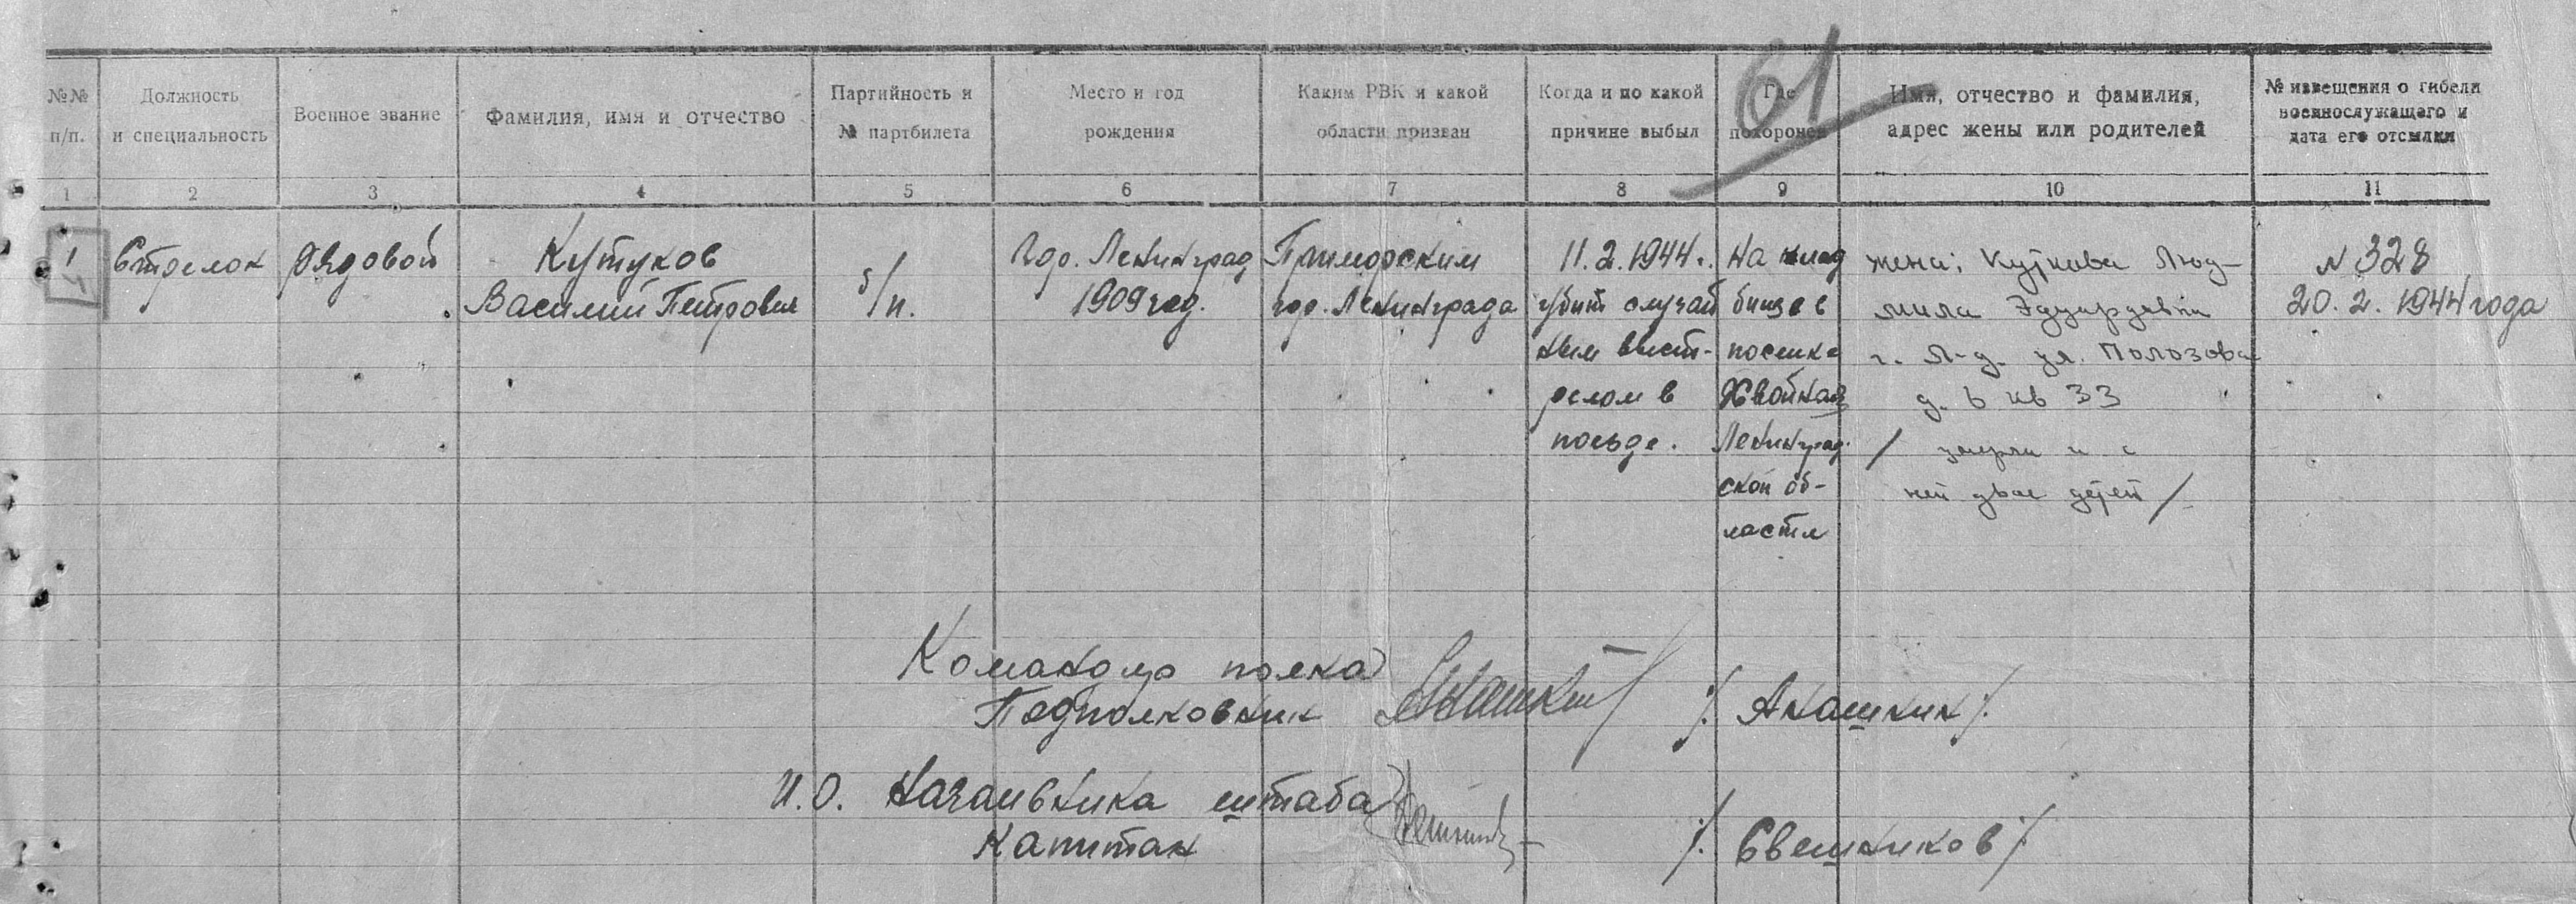 61
№№ п/п.
Должность и специальность
Военное звание
Фамилия, имя и отчество
Партийность и № партбилета
Место и год рождения
Каким РВК и какой области призван
Когда и по какой причине выбыл
Где похоронен
Имя, отчество и фамилия, адрес жены или родителей
№ извещения о гибели военнослужащего и дата его отсылки
1 2 3 4 5 6 7 8 9 10 11
1
Стрелок
рядовой
Кутуков
Василий Петрович
б/п.
Гор. Ленинград
1909 год.
Приморским
гор. Ленинграда
11.2.1944 г.
убит случай
ным выст-
релом в
поезде.
На клад
бище в
поселке
Хвойная
Ленинград
ской об-
ласти
жена: Куткова Люд-
мила Эдуардовна
г. Л-д. ул. Полозова
д. 6 кв 33
/ умерла и с
ней двое детей /
N 328
20.2.1944 года
Командир полка
Подполковник
/. Анашкин /.
И.О. Начальника штаба
Капитан
/. Свешников /.